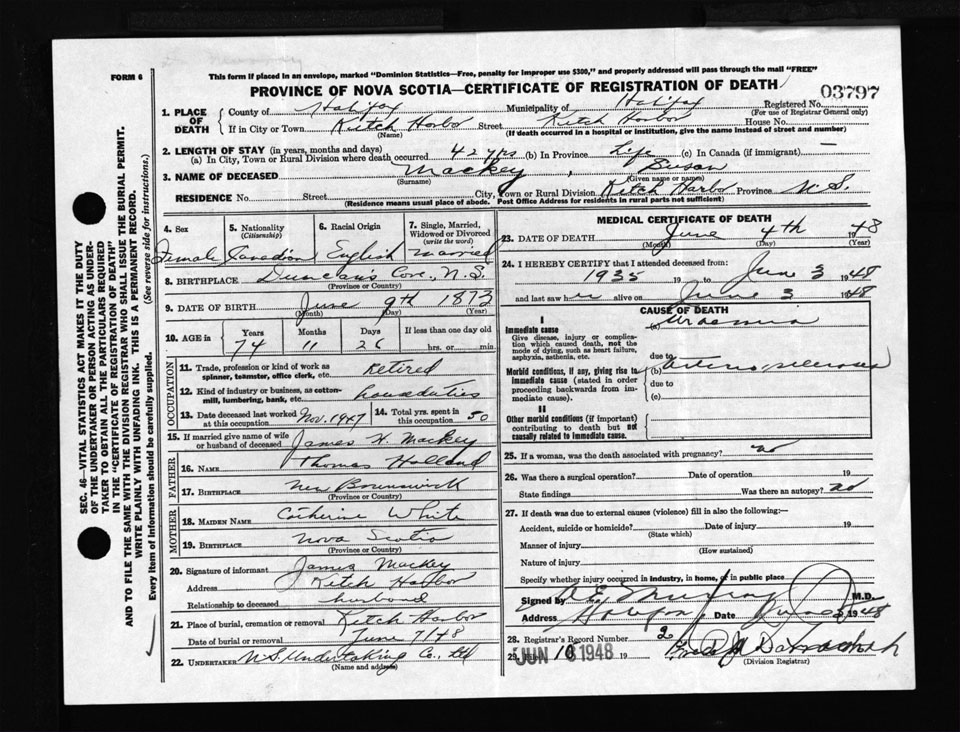 FORM 6
This form if placed in an envelope, marked "Dominion Statistics—Free, penalty for improper use $300," and properly addressed will pass through the mail "FREE"
PROVINCE OF NOVA SCOTIA—CERTIFICATE OF REGISTRATION OF DEATH
03797
1. PLACE OF DEATH
County of Halifax Municipality of Halifax Registered No.
(For use of Registrar General only)
If in City or Town Ketch Harbor Street Ketch Harbor House No.
(Name) (If death occurred in a hospital or institution, give the name instead of street and number)
2. LENGTH OF STAY (in years, months and days)
(a) In City, Town or Rural Division where death occurred 42 yrs (b) In Province Life (c) In Canada (if immigrant) —
3. NAME OF DECEASED Mackey, Susan
(Surname) (Given name or names)
RESIDENCE No. Street City, Town or Rural Division Ketch Harbor Province N.S.
(Residence means usual place of abode. Post Office Address for residents in rural parts not sufficient)
4. Sex 5. Nationality (Citizenship) 6. Racial Origin 7. Single, Married, Widowed or Divorced (write the word)
Female Canadian English Married
8. BIRTHPLACE Duncan's Cove, N.S.
(Province or Country)
9. DATE OF BIRTH June 9th 1873
(Month) (Day) (Year)
10. AGE in Years Months Days If less than one day old
74 11 26 hrs. or min.
OCCUPATION
11. Trade, profession or kind of work as spinner, teamster, office clerk, etc. Retired
12. Kind of industry or business, as cotton-mill, lumbering, bank, etc. houseduties
13. Date deceased last worked at this occupation Nov. 1947 14. Total yrs. spent in this occupation 50
15. If married give name of wife or husband of deceased James H. Mackey
FATHER
16. NAME Thomas Holland
17. BIRTHPLACE New Brunswick
(Province or Country)
MOTHER
18. MAIDEN NAME Catherine White
19. BIRTHPLACE Nova Scotia
(Province or Country)
20. Signature of informant James Mackey
Address Ketch Harbor
Relationship to deceased husband
21. Place of burial, cremation or removal Ketch Harbor
Date of burial or removal June 7/48
22. UNDERTAKER N.S. Undertaking Co., Ltd
(Name and address)
MEDICAL CERTIFICATE OF DEATH
23. DATE OF DEATH June 4th 1948
(Month) (Day) (Year)
24. I HEREBY CERTIFY that I attended deceased from:
1935 19 to June 3 1948
and last saw her alive on June 3 1948
CAUSE OF DEATH
I
Immediate cause (a) Uraemia
Give disease, injury or complication which caused death, not the mode of dying, such as heart failure, asphyxia, asthenia, etc.
due to
Morbid conditions, if any, giving rise to immediate cause (stated in order proceeding backwards from immediate cause).
(b) Arteriosclerosis
due to
(c)
II
Other morbid conditions (if important) contributing to death but not causally related to immediate cause.
25. If a woman, was the death associated with pregnancy? no
26. Was there a surgical operation? Date of operation 19
State findings Was there an autopsy? no
27. If death was due to external causes (violence) fill in also the following:—
Accident, suicide or homicide? Date of injury 19
(State which)
Manner of injury
(How sustained)
Nature of injury
Specify whether injury occurred in industry, in home, or in public place
Signed by Murray M.D.
Address Halifax June 1948
28. Registrar's Record Number 2
29. JUN 10 1948 19
(Division Registrar)
SEC. 46—VITAL STATISTICS ACT MAKES IT THE DUTY
OF THE UNDERTAKER OR PERSON ACTING AS UNDER-
TAKER TO OBTAIN ALL THE PARTICULARS REQUIRED
IN THE "CERTIFICATE OF REGISTRATION OF DEATH"
AND TO FILE THE SAME WITH THE DIVISION REGISTRAR WHO SHALL ISSUE THE BURIAL PERMIT.
WRITE PLAINLY WITH UNFADING INK. THIS IS A PERMANENT RECORD.
Every item of information should be carefully supplied. (See reverse side for instructions.)